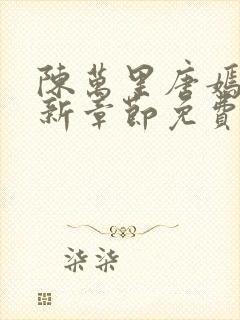 陳萬里唐嫣
新章節免費
柒柒